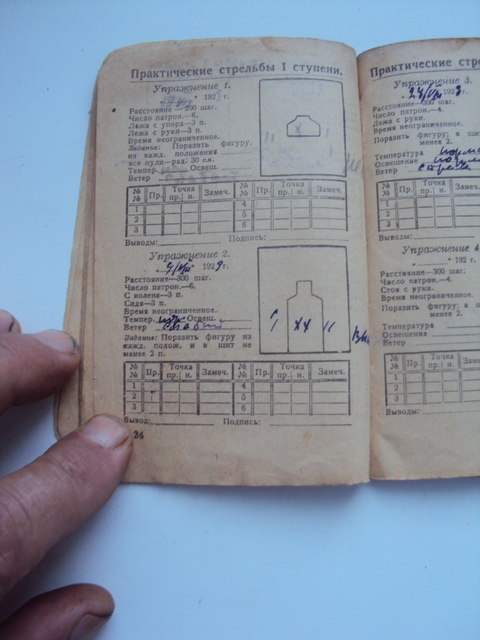 Практические стрельбы 1 ступени.
Упражнение 1.
192 г.
Расстояние—200 шаг.
Число патрон.—6.
Лежа с упора—3 п.
Лежа с руки—3 п.
Время неограниченное.
Задание: Поразить фигуру,
из кажд. положения
все пули—рад. 30 см.
Темпер. Освещ.
Ветер
№ № Пр. Точка пр. н. Замеч. № № Пр. Точка пр. н. Замеч.
1 4
2 5
3 6
Выводы: Подпись:
Упражнение 2.
1929 г.
Расстояние—300 шаг.
Число патрон.—6.
С колена—3 п.
Сидя—3 п.
Время неограниченное.
Темпер. Освещ.
Ветер слабый
Задание: Поразить фигуру из
кажд. полож. и в щит не
менее 2 п.
№ № Пр. Точка пр. н. Замеч. № № Пр. Точка пр. н. Замеч.
1 4
2 5
3 6
Вывод: Подпись:
24
Практические стре
Упражнение 3.
192
Расстояние—300 шаг.
Число патрон.—4.
Лежа с руки.
Время неограниченное.
Поразить фигуру, в щит
менее 2.
Температура
Освещение
Ветер
№ № Пр. Точка пр. н. Замеч.
1
2
3
Выводы:
Упражнение 4
192
Расстояние—300 шаг.
Число патрон.—4.
Стоя с руки.
Время неограниченное.
Поразить фигуру, в щит
менее 2.
Температура
Освещение
Ветер
№ № Пр. Точка пр. н. Замеч.
1
2
3
Выводы: